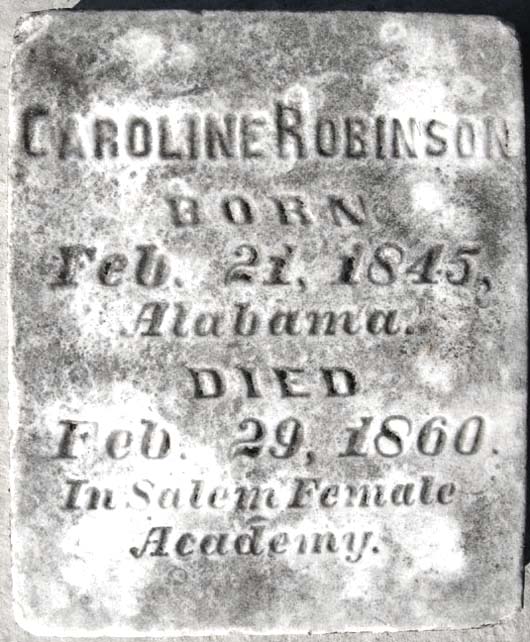 CAROLINE ROBINSON
BORN
Feb. 21, 1845,
Alabama.
DIED
Feb. 29, 1860.
In Salem Female
Academy.